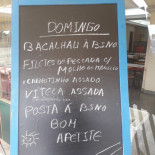 DOMINGO
BACALHAU A BINO
FILETES DE PESCADA C/
MOLHO DE MARISCO
CABRITINHO ASSADO
VITELA ASSADA
POSTA A BINO
BOM
APETITE